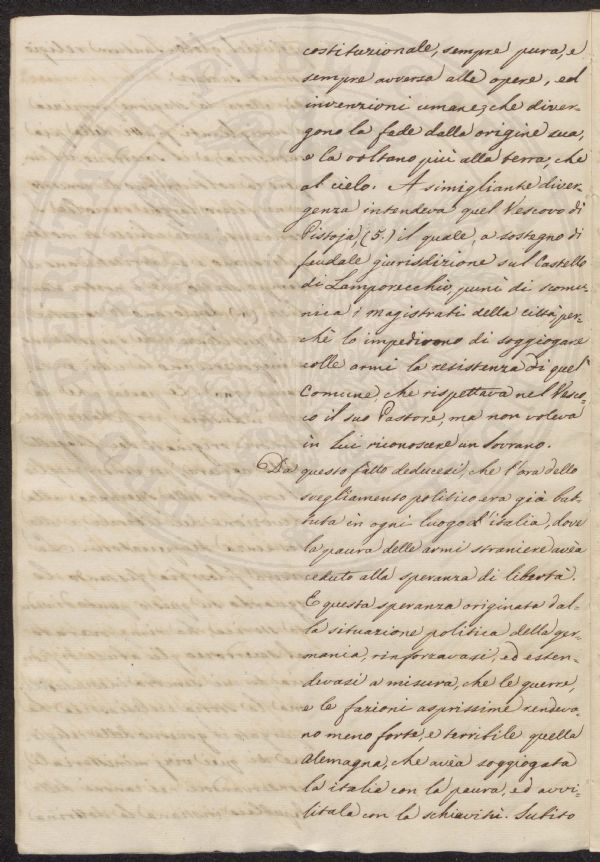 costituzionale, sempre pura, e
sempre avversa alle opere, ed
invenzioni umane, che diver-
gono la fede dalla origine sua,
e la voltano più alla terra, che
al cielo. A simigliante diver-
genza intendeva quel Vescovo di
Pistoja, (5.) il quale, a sostegno di
feudale giurisdizione sul Castello
di Lamporecchio, punì di scomu-
nica i magistrati della città, per-
chè lo impedirono di soggiogare
colle armi la resistenza di quel
Comune, che rispettava nel Vesco-
vo il suo Pastore, ma non voleva
in lui riconoscere un Sovrano.
Da questo fatto deducesi, che l'ora dello
svegliamento politico era già bat-
tuta in ogni luogo d'italia, dove
la paura delle armi straniere avèa
ceduto alla speranza di libertà.
E questa speranza originata dal-
la situazione politica della ger-
mania, rinforzavasi, ed esten-
devasi a misura, che le guerre,
e le fazioni asprissime rendeva-
no meno forte, e terribile quella
Alemagna, che avèa soggiogata
la italia con la paura, ed avvi-
litala con la schiavitù. Subito